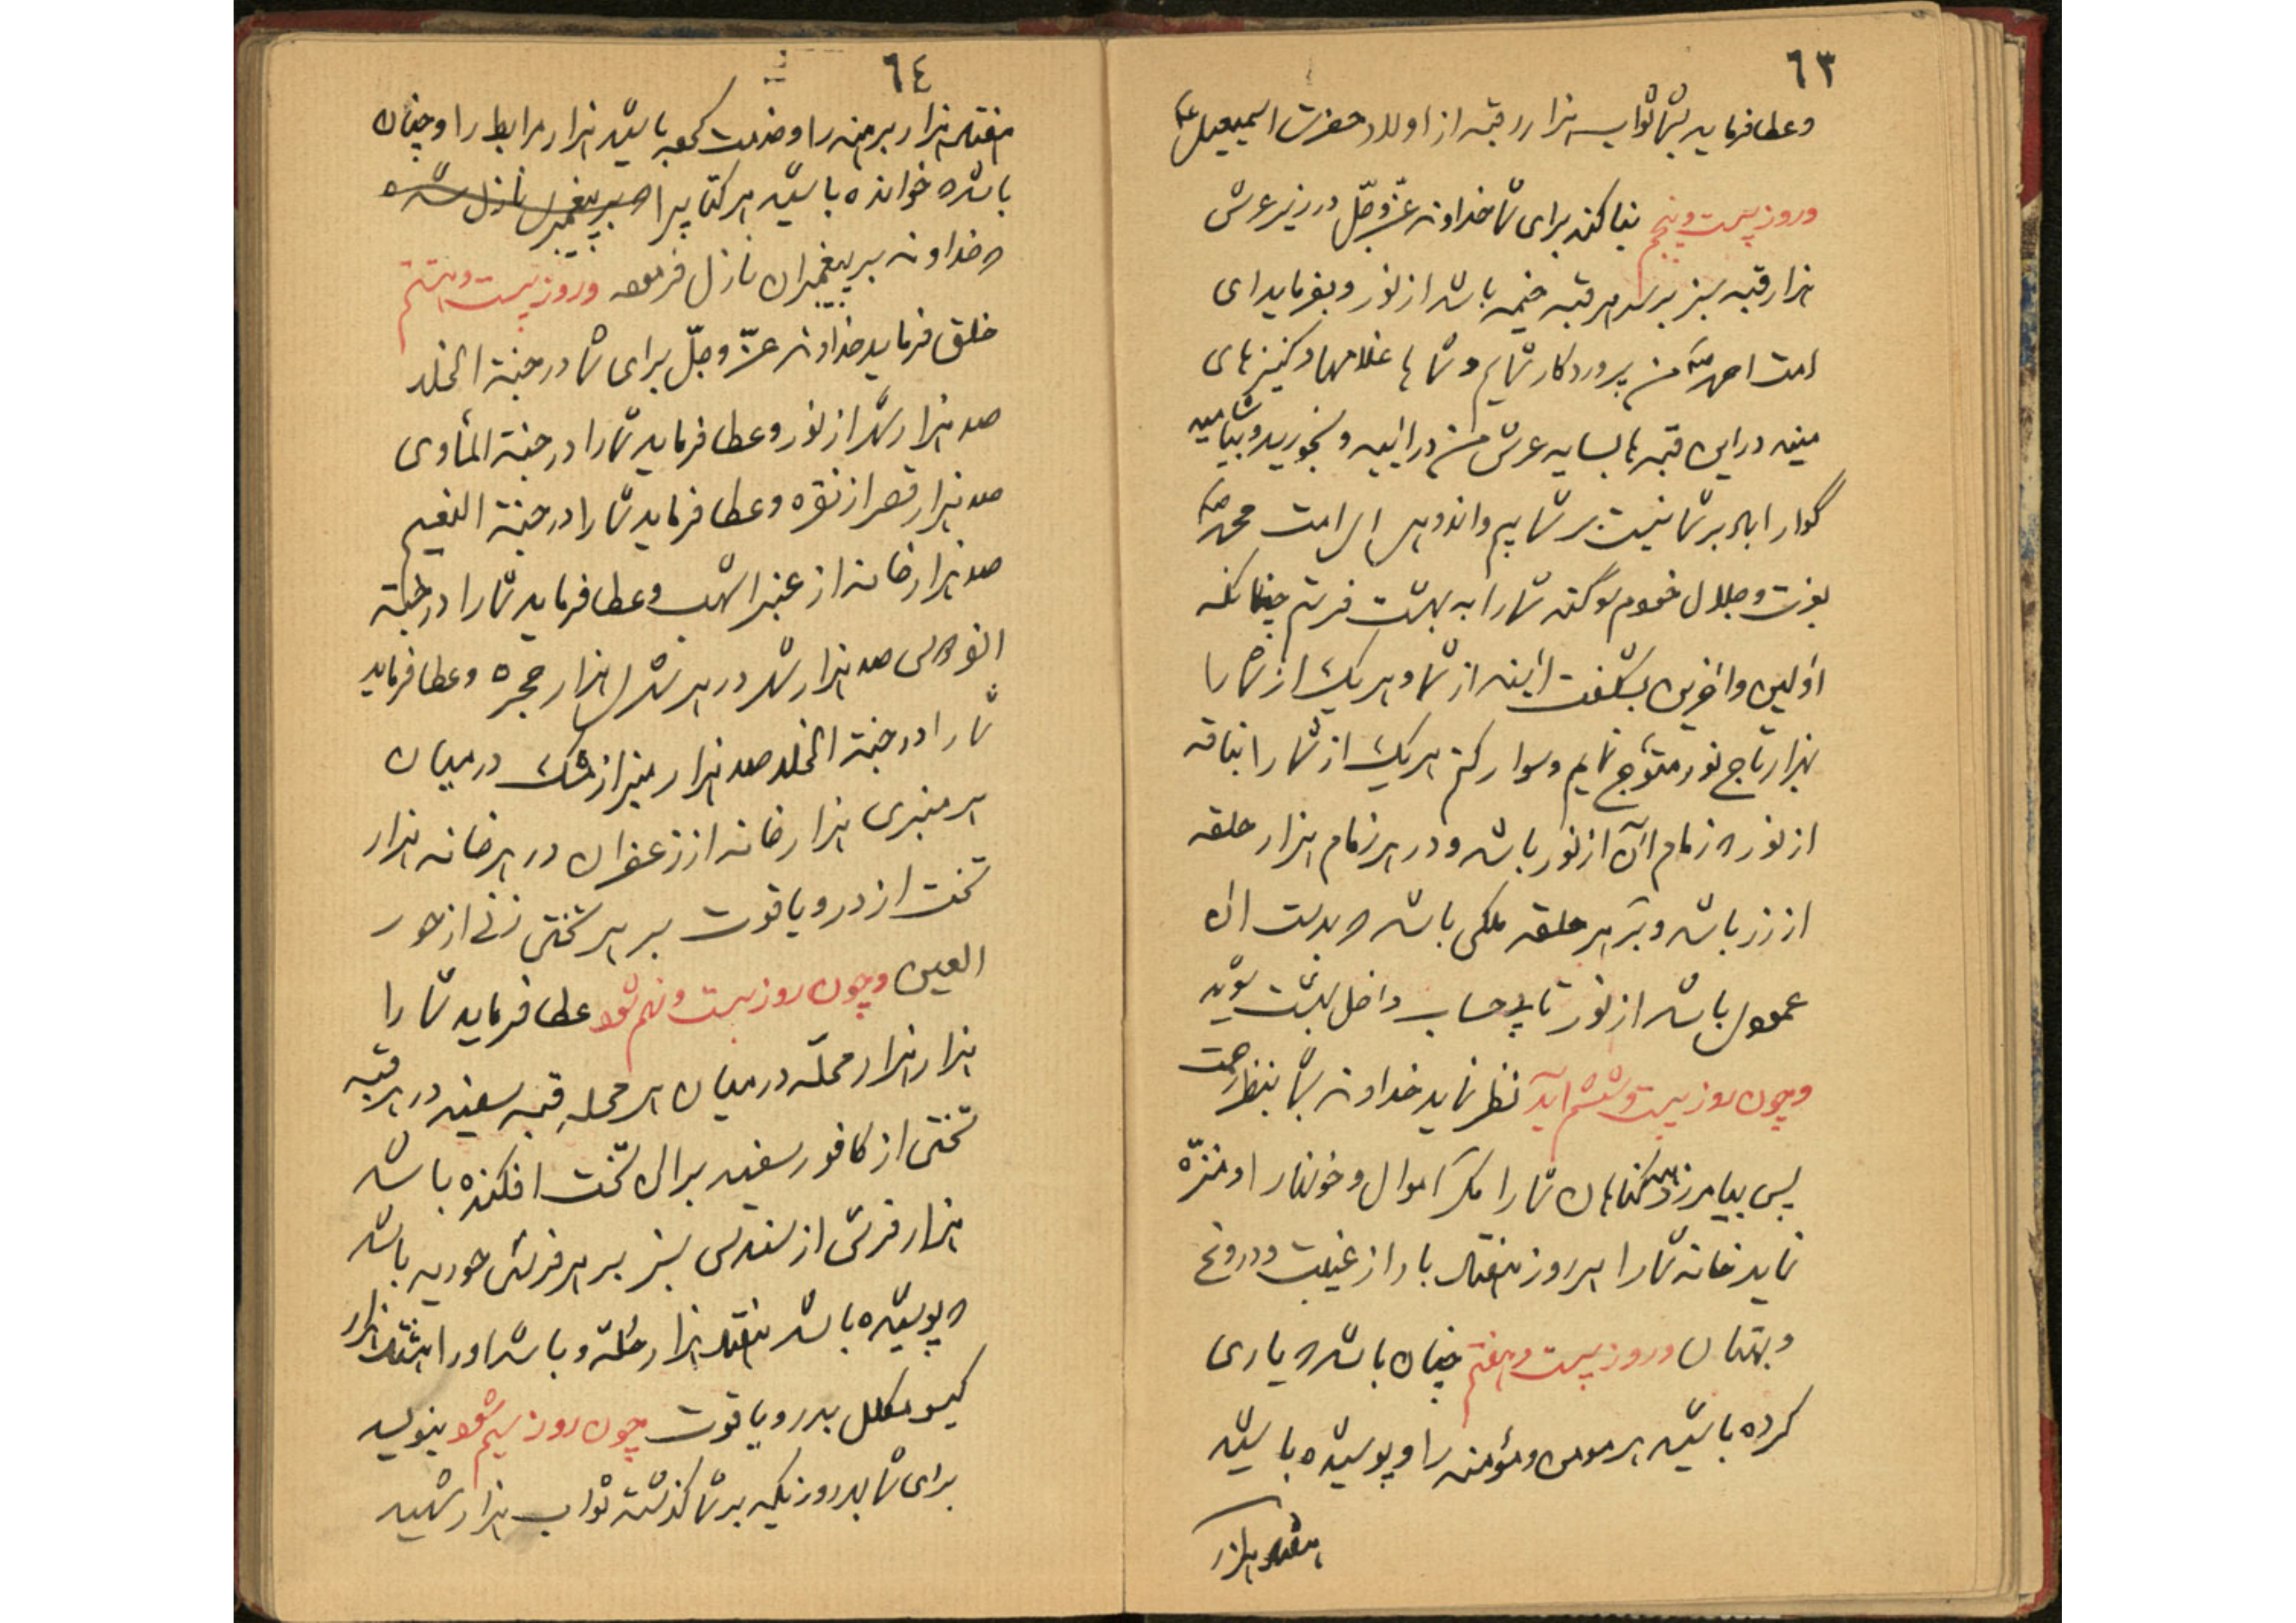 ٦٣
وعطا فرماید بشما ثواب هزار رقبه از اولاد حضرت اسمعیل ع
وروز بیست وپنجم بنا کند برای شما خداوند عزّ وجلّ در زیر عرش
هزار قبه سبز بر سر هر قبه خیمه باشد از نور وبفرماید ای
امت احمد ص من پروردکار شمایم وشماها غلامها وکنیزهای
منید در این قبه ها بسایه عرش من درائید وبخورید وبیاشامید
گوارا باد بر شما نیست بر شما بیم واندوهی ای امت محمد ص
بعزت وجلال خودم سوگند شما را به بهشت فرستم چنانکه
اولین واخرین بشگفت آیند از شما وهر یک از شما را
بهزار تاج نور متوّج نمایم وسوار کنم هر یک از شما را بناقه
از نور که زمام آن از نور باشد ودر هر زمام هزار حلقه
از زر باشد وبر هر حلقه ملکی باشد که بدست ان
عمودی باشد از نور تا بیحساب داخل بهشت شوید
وچون روز بیست وششم آید نظر نماید خداوند بشما بنظر رحمت
پس بیامرزد همه گناهان شما را مگر اموال وخونها را ومنزّه
نماید خانه شما را هر روز هفتاد بار از غیبت ودروغ
وبهتان وروز بیست وهفتم چنان باشد که یاری
کرده باشید هر مومن ومؤمنه را وپوشیده باشید
هفتاد هزار
٦٤
هفتاد هزار برهنه را وخدمت کرده باشید هزار مرابط را وچنان
باشد که خوانده باشید هر کتابیرا که بر پیغمبری نازل شده
که خداوند بر پیغمبران نازل فرموده وروز بیست وهشتم
خلق فرماید خداوند عزّ وجلّ برای شما در جنة الخلد
صد هزار شهر از نور وعطا فرماید شما را در جنة المأوی
صد هزار قصر از نقره وعطا فرماید شما را در جنة النعیم
صد هزار خانه از عنبر اشهب وعطا فرماید شما را در جنة
الفردوس صد هزار شهر در هر شهری هزار حجره وعطا فرماید
شما را در جنة الخلد صد هزار منبر از مشک در میان
هر منبری هزار خانه از زعفران در هر خانه هزار
تخت از در ویاقوت بر هر تختی زنی از حور
العین وچون روز بیست ونهم شود عطا فرماید شما را
هزار هزار محلّه در میان هر محله قبه سفید در هر قبه
تختی از کافور سفید بر ان تخت افکنده باشد
هزار فرش از سندس سبز بر هر فرشی حوریه باشد
که پوشیده باشد هفتاد هزار حلّه وباشد او را هشتاد هزار
گیسو مکلل بدر ویاقوت چون روز سیم شود بنویسد
برای شما بهر روزیکه بر شما گذشته ثواب هزار شهید